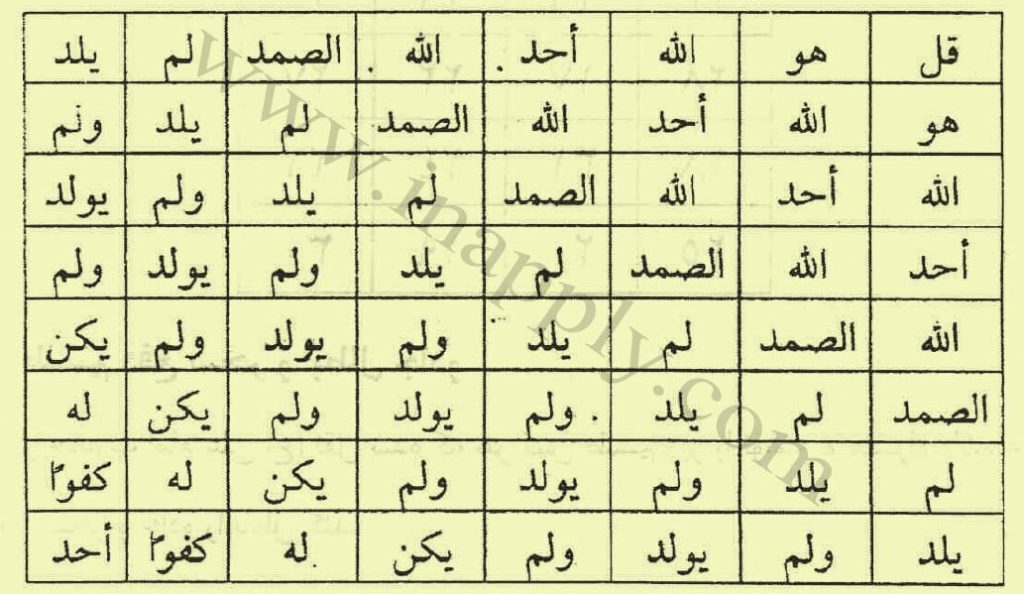 قل هو الله أحد الله الصمد لم يلد
هو الله أحد الله الصمد لم يلد ونم
الله أحد الله الصمد لم يلد ولم يولد
أحد الله الصمد لم يلد ولم يولد ولم
الله الصمد لم يلد ولم يولد ولم يكن
الصمد لم يلد ولم يولد ولم يكن له
لم يلد ولم يولد ولم يكن له كفوًا
يلد ولم يولد ولم يكن له كفوًا أحد
www.inapply.com